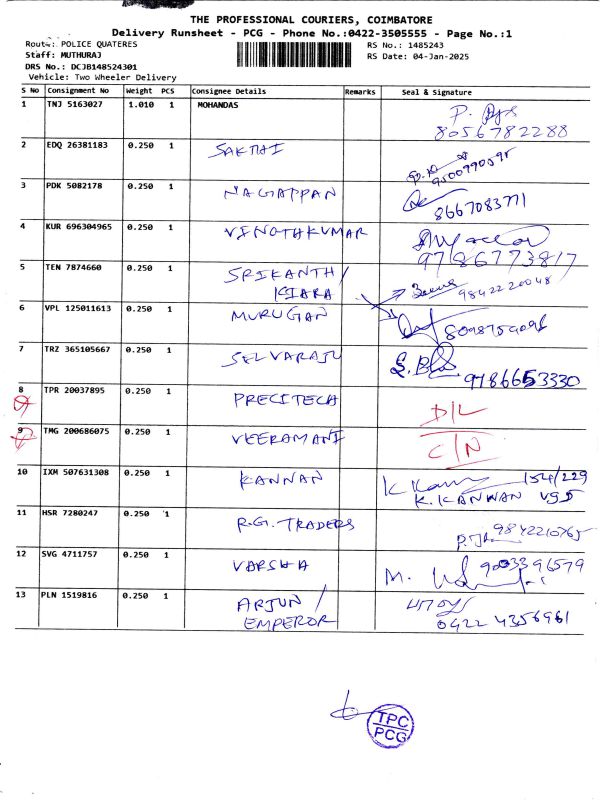 THE PROFESSIONAL COURIERS, COIMBATORE
Delivery Runsheet - PCG - Phone No.:0422-3505555 - Page No.:1
Route: POLICE QUATERES RS No.: 1485243
Staff: MUTHURAJ RS Date: 04-Jan-2025
DRS No.: DCJB148524301
Vehicle: Two Wheeler Delivery
S No Consignment No Weight PCS Consignee Details Remarks Seal & Signature
1 TNJ 5163027 1.010 1 MOHANDAS P.
8056782288
2 EDQ 26381183 0.250 1 SAKTHI
9500770595
3 PDK 5082178 0.250 1 NAGAPPAN 8667083771
4 KUR 696304965 0.250 1 VINOTHKUMAR
9786773817
5 TEN 7874660 0.250 1 SRIKANTH/
KIARA 9842220048
6 VPL 125011613 0.250 1 MURUGAN
7 TRZ 365105667 0.250 1 SELVARAJU
9786653330
8 TPR 20037895 0.250 1 PRECITECH D/L
9 TMG 200686075 0.250 1 VEERAMANI C/N
10 IXM 507631308 0.250 1 KANNAN 154/229
K. KANNAN
11 HSR 7280247 0.250 1 R.G. TRADERS 9842210765
12 SVG 4711757 0.250 1 VARSHA M. 9003396579
13 PLN 1519816 0.250 1 ARJUN /
EMPEROR 0422 4356961
TPC
PCG